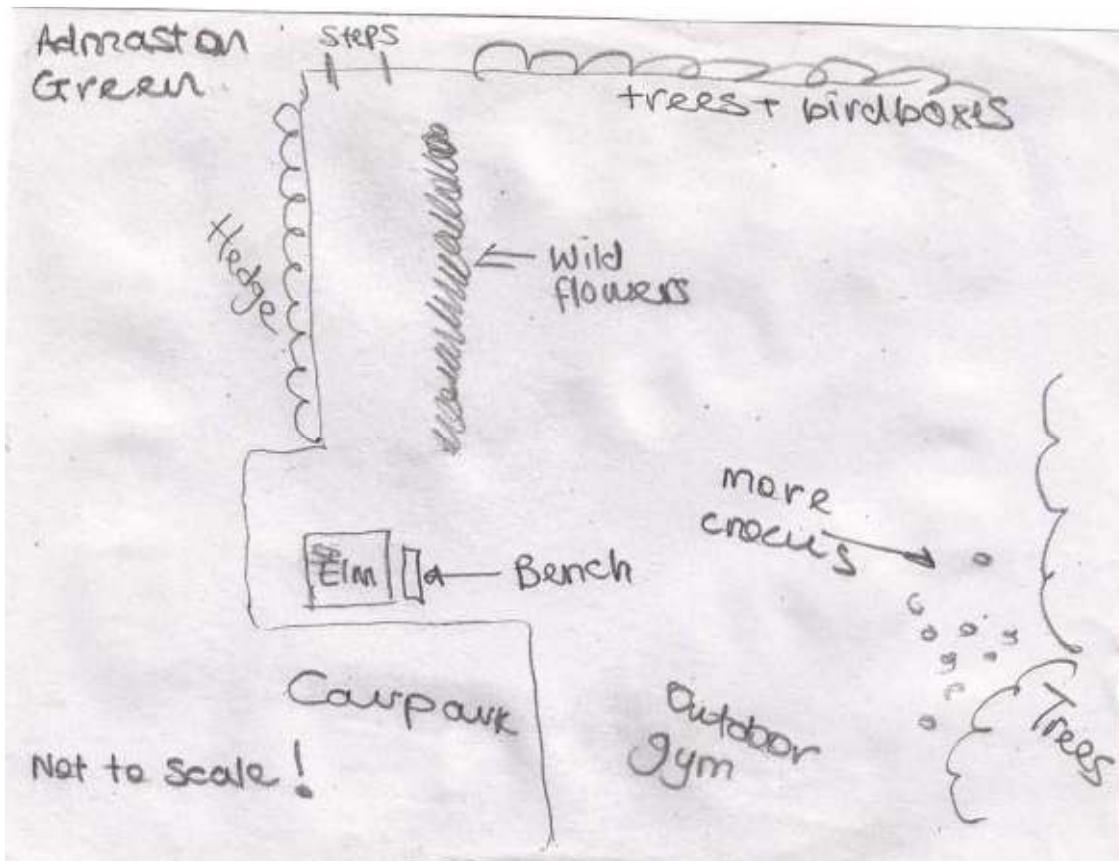 Admaston
Green
steps
trees + birdboxes
Hedge
Wild
flowers
more
crocus
Elm
Bench
Carpark
Outdoor
gym
Trees
Not to scale!